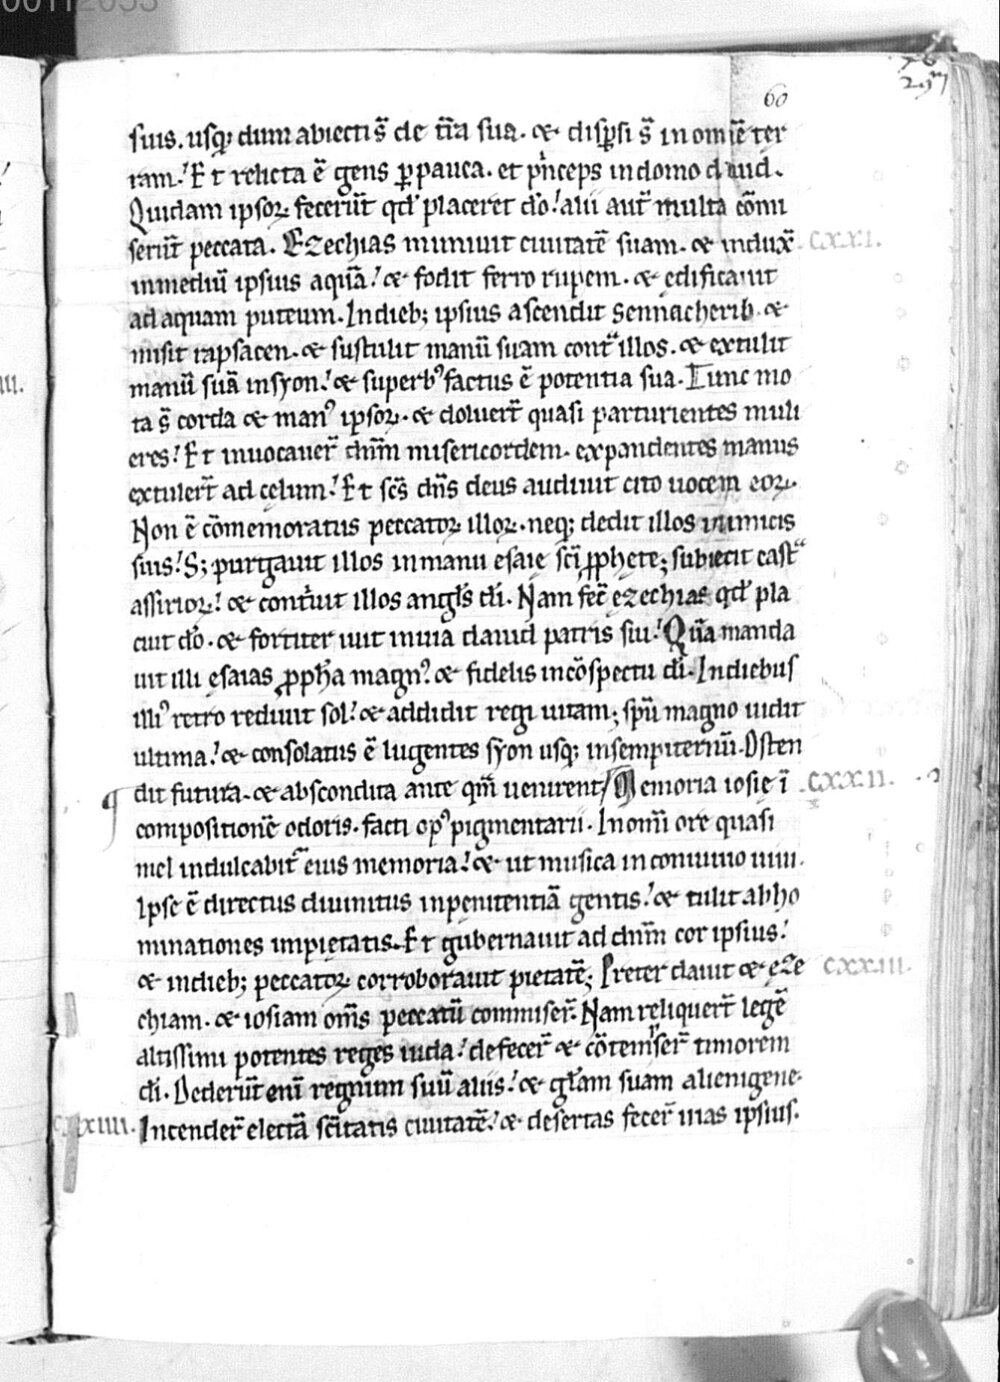 00112053
60
suis. usq; dum abiecti s̄ de tr̄a sua. & disp̱si s̄ in omnē ter
ram. Et relicta ē gens p̱pauca. et pͥnceps in domo dauid.
Quidam ipsoꝝ fecerūt qđ placeret dō. alii aut̄ multa cōmi
serūt peccata. Ezechias muniuit ciuitatē suam. & indux̄ CXXI.
in mediū ipsius aquā. & fodit ferro rupem. & ędificauit
ad aquam puteum. In dieb; ipsius ascendit sennacherib. &
misit rapsacen. & sustulit manū suam contᵃ illos. & extulit
manū suā in syon. & superbꝰ factus ē potentia sua. Tunc mo
ta s̄ corda & manꝰ ipsoꝝ. & doluert̄ quasi parturientes muli
eres. Et inuocauer̄t dn̄m misericordem. expandentes manus
extulert̄ ad cęlum. Et sc̄s dn̄s deus audiuit cito uocem eoꝝ.
Non ē cōmemoratus peccatoꝝ illoꝝ. neq; dedit illos inimicis
suis. S; purgauit illos in manu esaie sc̄i ꝓphete; subiecit castᵃ
assirioꝝ. & contͥuit illos angl̄s dī. Nam fec̄ ezechias qđ pla
cuit dō. & fortiter iuit in uia dauid patris sui. Quā manda
uit illi ęsaias ꝓph̄a magnꝰ. & fidelis in cōspectu dī. In diebus
illiꝰ retro rediuit sol. & addidit regi uitam; sp̄u magno uidit
ultima. & consolatus ē lugentes syon usq; in sempiternū. Osten
dit futura. & abscondita ante qm̄ uenirent/ Memoria iosię ī CXXII.
compositionē odoris. facti opꝰ pigmentarii. In om̄i ore quasi
mel indulcabit̄ eius memoria. & ut musica in conuiuio uini.
Ipse ē directus diuinitus in penitentiā gentis. & tulit abho
minationes impietatis. Et gubernauit ad dn̄m cor ipsius.
& in dieb; peccatoꝝ corroborauit pietatē; Preter dauit & eze CXXIII.
chiam. & iosiam om̄s peccatū commiser̄. Nam reliquert̄ legē
altissimi potentes reges iuda. defecer̄ & cōtempser̄ timorem
dī. Dederūt enī regnum suū aliis. & gl̄am suam alienigene.
CXXIIII. Incender̄ electā sc̄itatis ciuitatē. & desertas fecer̄ uias ipsius.